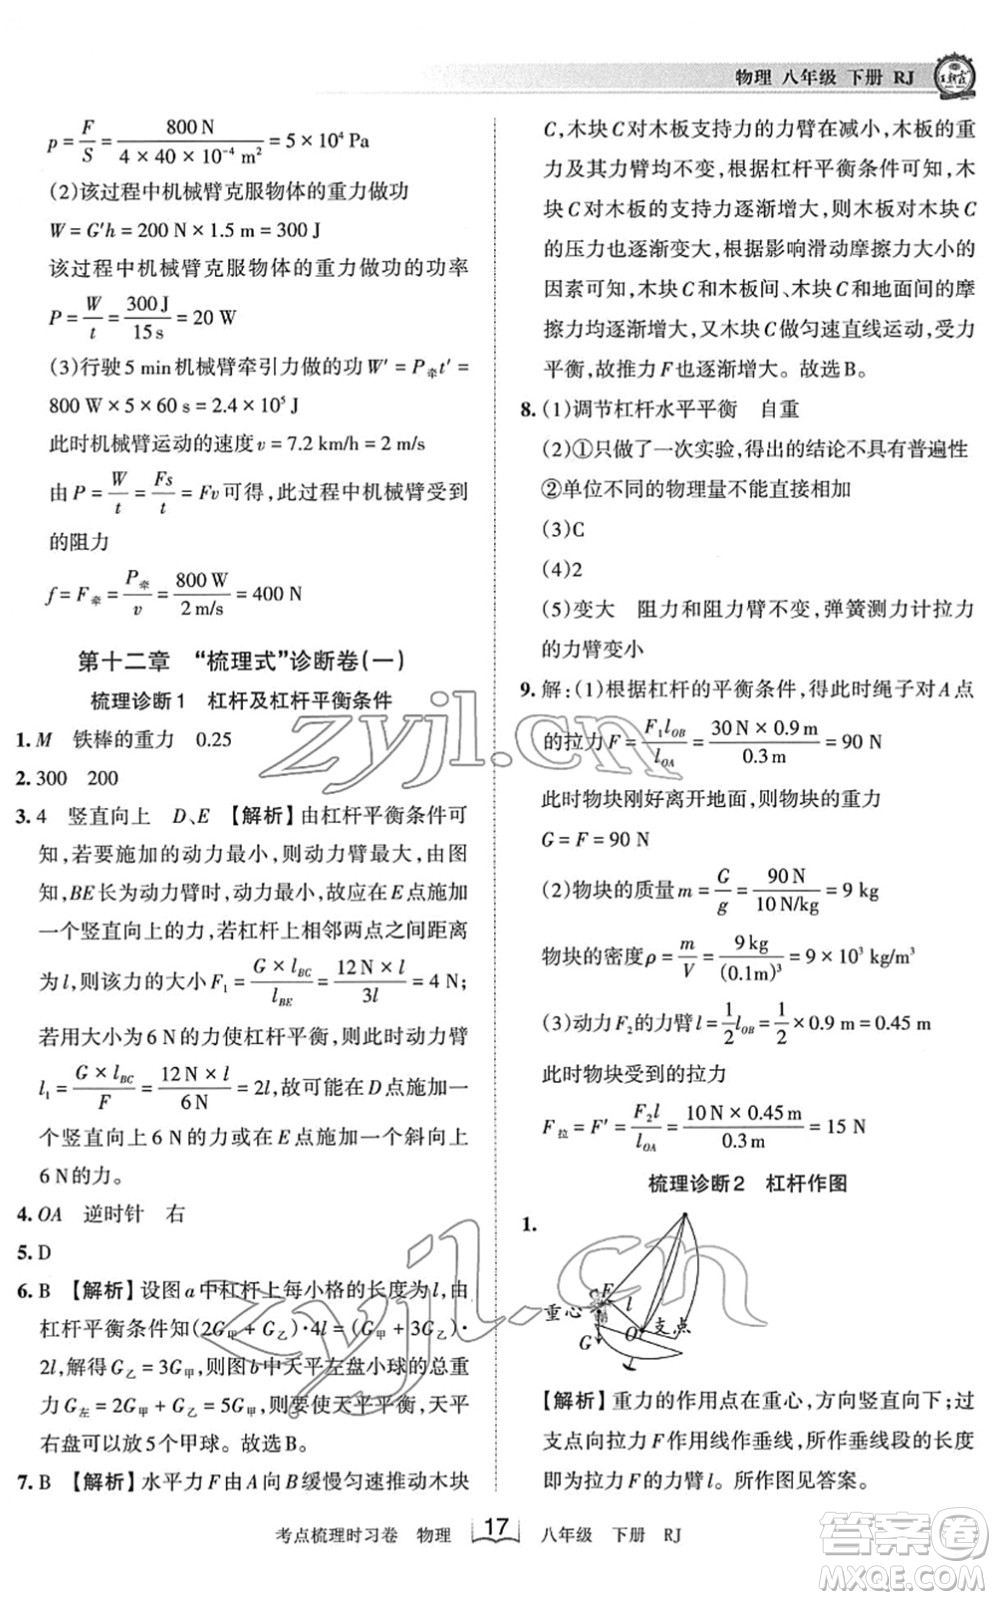 物理 八年级 下册 RJ
王朝霞
p = F/S = 800 N / (4 × 40 × 10⁻⁴ m²) = 5 × 10⁴ Pa
(2)该过程中机械臂克服物体的重力做功
W = G′h = 200 N × 1.5 m = 300 J
该过程中机械臂克服物体的重力做功的功率
P = W/t = 300 J / 15 s = 20 W
(3)行驶 5 min 机械臂牵引力做的功 W′ = P牵t′ =
800 W × 5 × 60 s = 2.4 × 10⁵ J
此时机械臂运动的速度 v = 7.2 km/h = 2 m/s
由 P = W/t = Fs/t = Fv 可得,此过程中机械臂受到
的阻力
f = F牵 = P牵/v = 800 W / 2 m/s = 400 N
第十二章 “梳理式”诊断卷(一)
梳理诊断1 杠杆及杠杆平衡条件
1. M 铁棒的重力 0.25
2. 300 200
3. 4 竖直向上 D、E 【解析】由杠杆平衡条件可
知,若要施加的动力最小,则动力臂最大,由图
知,BE长为动力臂时,动力最小,故应在E点施加
一个竖直向上的力,若杠杆上相邻两点之间距离
为l,则该力的大小F₁ = G × l_BC / l_BE = 12 N × l / 3l = 4 N;
若用大小为 6 N 的力使杠杆平衡,则此时动力臂
l₁ = G × l_BC / F = 12 N × l / 6 N = 2l,故可能在 D 点施加一
个竖直向上 6 N 的力或在 E 点施加一个斜向上
6 N的力。
4. OA 逆时针 右
5. D
6. B 【解析】设图 a 中杠杆上每小格的长度为 l,由
杠杆平衡条件知(2G甲 + G乙)·4l = (G甲 + 3G乙)·
2l,解得 G乙 = 3G甲,则图 b 中天平左盘小球的总重
力 G左 = 2G甲 + G乙 = 5G甲,要使天平平衡,天平
右盘可以放5个甲球。故选B。
7. B 【解析】水平力 F 由 A 向 B 缓慢匀速推动木块
C,木块 C 对木板支持力的力臂在减小,木板的重
力及其力臂均不变,根据杠杆平衡条件可知,木
块 C 对木板的支持力逐渐增大,则木板对木块 C
的压力也逐渐变大,根据影响滑动摩擦力大小的
因素可知,木块 C 和木板间、木块 C 和地面间的摩
擦力均逐渐增大,又木块 C 做匀速直线运动,受力
平衡,故推力 F 也逐渐增大。故选B。
8. (1)调节杠杆水平平衡 自重
(2)①只做了一次实验,得出的结论不具有普遍性
②单位不同的物理量不能直接相加
(3)C
(4)2
(5)变大 阻力和阻力臂不变,弹簧测力计拉力
的力臂变小
9. 解:(1)根据杠杆的平衡条件,得此时绳子对A点
的拉力 F = F₁l_OB / l_OA = 30 N × 0.9 m / 0.3 m = 90 N
此时物块刚好离开地面,则物块的重力
G = F = 90 N
(2)物块的质量 m = G/g = 90 N / 10 N/kg = 9 kg
物块的密度 ρ = m/V = 9 kg / (0.1m)³ = 9 × 10³ kg/m³
(3)动力 F₂ 的力臂 l = 1/2 l_OB = 1/2 × 0.9 m = 0.45 m
此时物块受到的拉力
F拉 = F′ = F₂l / l_OA = 10 N × 0.45 m / 0.3 m = 15 N
梳理诊断2 杠杆作图
1.
F
l
重心
O
支点
G
L
【解析】重力的作用点在重心,方向竖直向下;过
支点向拉力 F 作用线作垂线,所作垂线段的长度
即为拉力 F 的力臂 l。所作图见答案。
考点梳理时习卷 物理 17 八年级 下册 RJ
zyjl.cn
zyjl.cn
答案圈
MXQE.COM